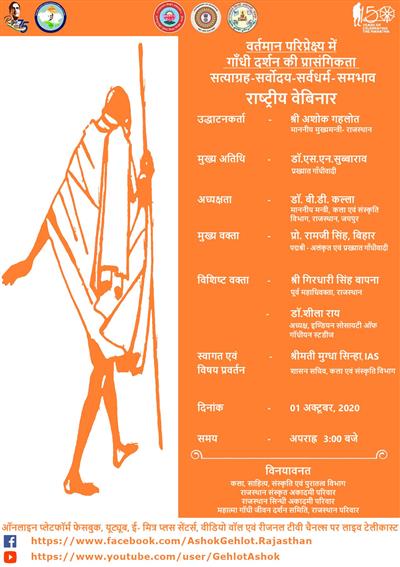 150
YEARS OF
CELEBRATING
THE MAHATMA
वर्तमान परिप्रेक्ष्य में
गाँधी दर्शन की प्रासंगिकता
सत्याग्रह-सर्वोदय-सर्वधर्म-समभाव
राष्ट्रीय वेबिनार
उद्घाटनकर्ता - श्री अशोक गहलोत
माननीय मुख्यमन्त्री- राजस्थान
मुख्य अतिथि - डॉ.एस.एन.सुब्बाराव
प्रख्यात गाँधीवादी
अध्यक्षता - डॉ. बी.डी. कल्ला
माननीय मन्त्री, कला एवं संस्कृति
विभाग, राजस्थान, जयपुर
मुख्य वक्ता - प्रो. रामजी सिंह, बिहार
पद्मश्री - अलंकृत एवं प्रख्यात गाँधीवादी
विशिष्ट वक्ता - श्री गिरधारी सिंह बापना
पूर्व महाधिवक्ता, राजस्थान
- डॉ.शीला राय
अध्यक्ष, इण्डियन सोसायटी ऑफ
गाँधीयन स्टडीज
स्वागत एवं - श्रीमती मुग्धा सिन्हा, IAS
विषय प्रवर्तन शासन सचिव, कला एवं संस्कृति विभाग
दिनांक - 01 अक्टूबर, 2020
समय - अपराह्न 3:00 बजे
विनयावनत
कला, साहित्य, संस्कृति एवं पुरातत्व विभाग
राजस्थान संस्कृत अकादमी परिवार
राजस्थान सिन्धी अकादमी परिवार
महात्मा गाँधी जीवन दर्शन समिति, राजस्थान परिवार
ऑनलाइन प्लेटफॉर्म फेसबुक, यूट्यूब, ई- मित्र प्लस सेंटर्स, वीडियो वॉल एवं रीजनल टीवी चैनल्स पर लाइव टेलीकास्ट
https://www.facebook.com/AshokGehlot.Rajasthan
https://www.youtube.com/user/GehlotAshok